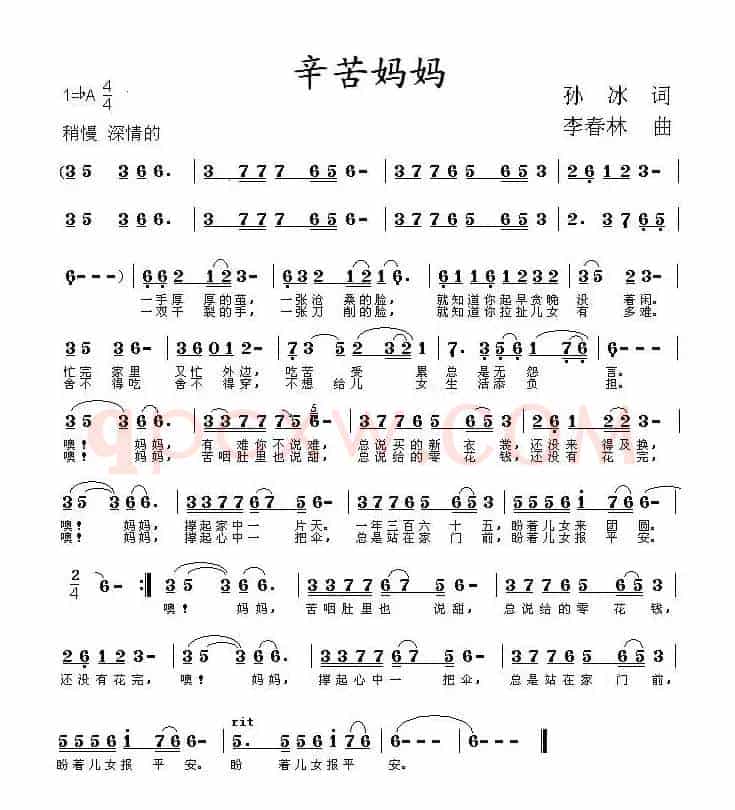 辛苦妈妈
1=bA 4/4
孙 冰 词
稍慢 深情的
李春林 曲
(35 366. | 3 777 65 6- | 37776 5653 | 26123- |
35 366. | 3 777 65 6- | 37776 5653 | 2. 3765 |
6---) | 662 123- | 332 121 6. | 61161232 | 35 23- |
一手厚 厚的茧， 一张沧 桑的脸， 就知道你起早贪晚 没 着闲。
一双干 裂的手， 一张刀 削的脸， 就知道你拉扯儿女 有 多难。
35 36- | 3601 23- | 73 52 321 | 7. 3561 76 | 6--- |
忙完 家里 又忙 外边， 吃苦 受 累 总 是无 怨 言。
舍不 得吃 舍不 得穿， 不想 给儿 女 生 活添 负 担。
35 366. | 33777 756- | 37776 5653 | 261 223- |
噢！ 妈妈， 有 难你不说难， 总说买的新 衣 裳， 还没来 得及换，
噢！ 妈妈， 苦咽肚里也说甜， 总说给的零 花 钱， 还没有 花 完，
35 366. | 33777 67 56- | 37776 5653 | 55561 766- |
噢！ 妈妈， 撑起家中一 片天。 一年三百六 十五， 盼着儿女来 团 圆。
噢！ 妈妈， 撑起心中一 把伞， 总是站在家 门 前， 盼着儿女报 平 安。
2/4 6- :‖ 35 366. | 33777 67 56- | 37776 5653 |
噢！ 妈妈， 苦咽肚里也 说甜， 总说给的零 花 钱，
26123- | 35 366. | 33777 67 56- | 37776 5653 |
还没有花完， 噢！ 妈妈， 撑起心中一 把伞， 总是站在家 门 前，
rit
55561 766- | 5. 5561 766- | 6--- ‖
盼着儿女报 平 安。 盼 着儿女报平 安。